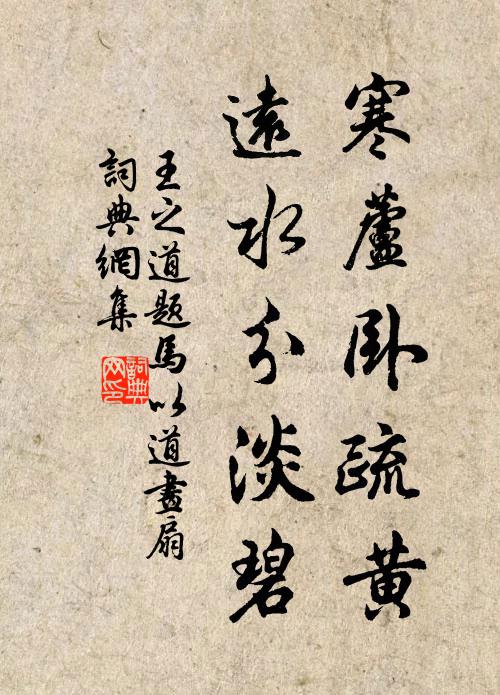 寒蘆卧疏黄
遠水分淡碧
王之道題馬以道畫扇
詞典網集
詞典
网印